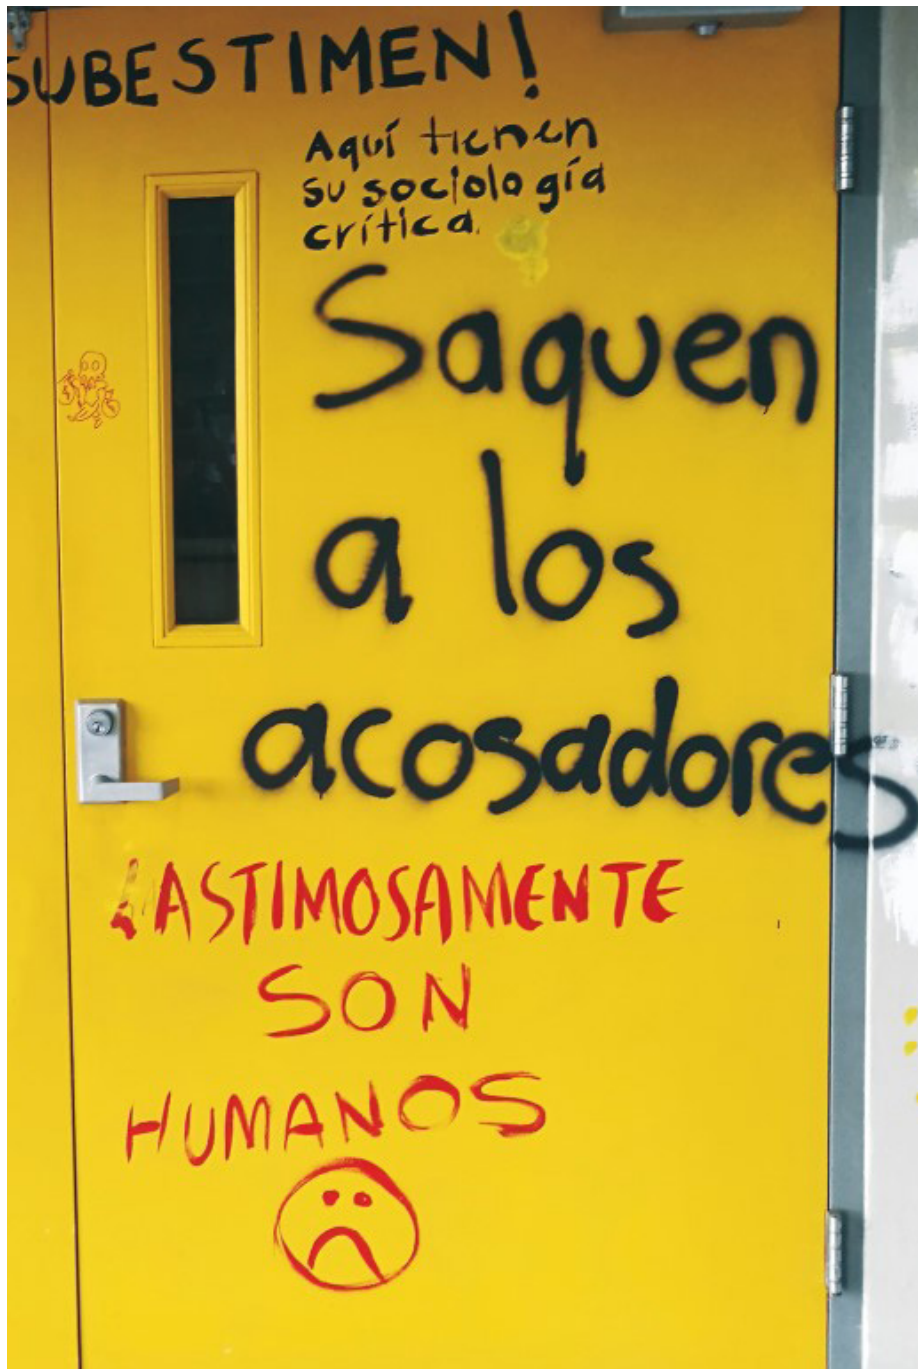 SUBESTIMEN!
Aquí tienen
su sociología
crítica.
Saquen
a los
acosadores
LASTIMOSAMENTE
SON
HUMANOS